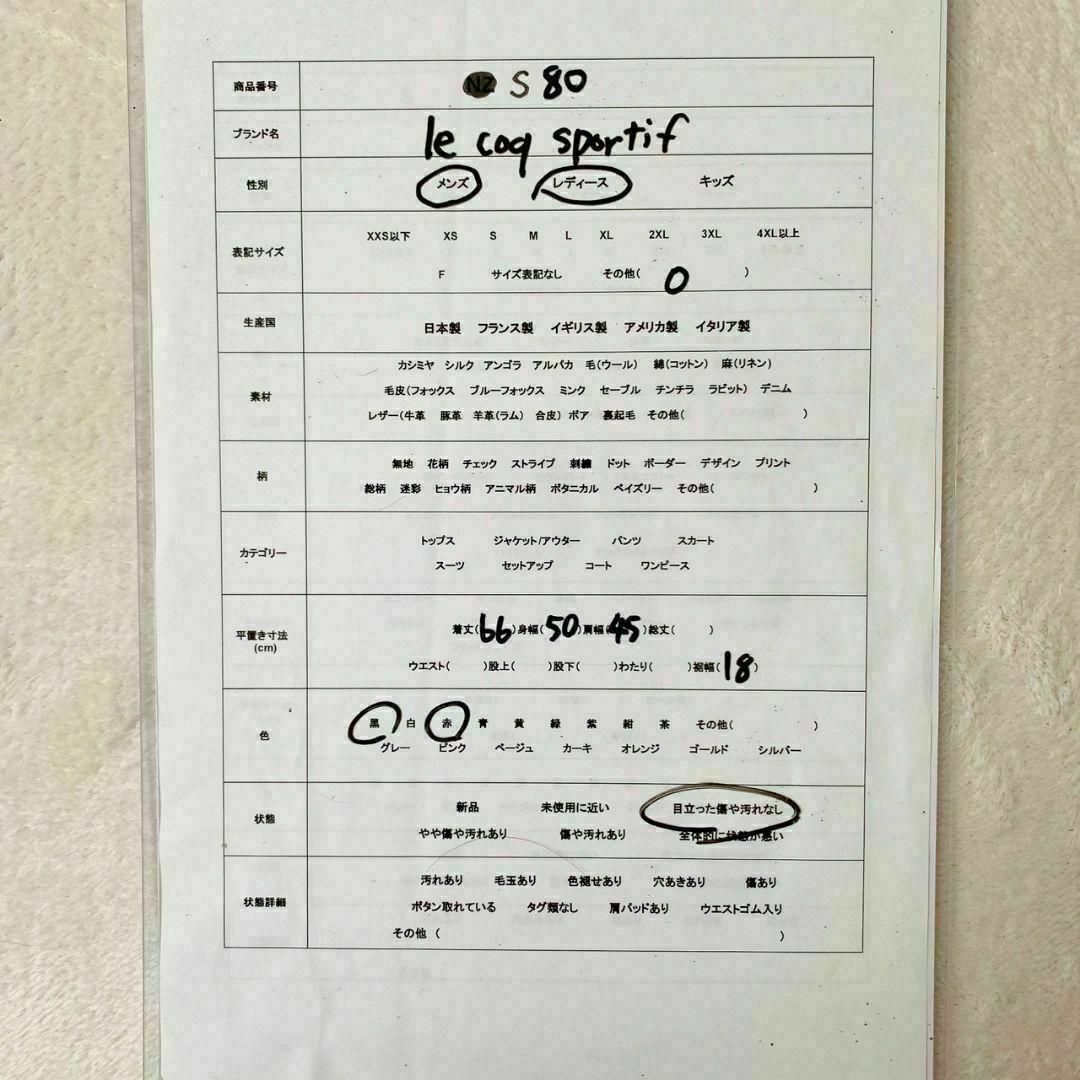 商品番号 NZ S 80
ブランド名 le coq sportif
性別 メンズ レディース キッズ
XXS以下 XS S M L XL 2XL 3XL 4XL以上
表記サイズ
F サイズ表記なし その他( 0 )
生産国 日本製 フランス製 イギリス製 アメリカ製 イタリア製
カシミヤ シルク アンゴラ アルパカ 毛(ウール) 綿(コットン) 麻(リネン)
素材 毛皮(フォックス ブルーフォックス ミンク セーブル チンチラ ラビット) デニム
レザー(牛革 豚革 羊革(ラム) 合皮) ボア 裏起毛 その他( )
無地 花柄 チェック ストライプ 刺繍 ドット ボーダー デザイン プリント
柄
総柄 迷彩 ヒョウ柄 アニマル柄 ボタニカル ペイズリー その他( )
トップス ジャケット/アウター パンツ スカート
カテゴリー
スーツ セットアップ コート ワンピース
着丈( 66 )身幅( 50 )肩幅( 45 )総丈( )
平置き寸法
(cm)
ウエスト( )股上( )股下( )わたり( )裾幅( 18 )
黒 白 赤 青 黄 緑 紫 紺 茶 その他( )
色
グレー ピンク ベージュ カーキ オレンジ ゴールド シルバー
新品 未使用に近い 目立った傷や汚れなし
状態
やや傷や汚れあり 傷や汚れあり 全体的に状態が悪い
汚れあり 毛玉あり 色褪せあり 穴あきあり 傷あり
状態詳細 ボタン取れている タグ類なし 肩パッドあり ウエストゴム入り
その他 ( )